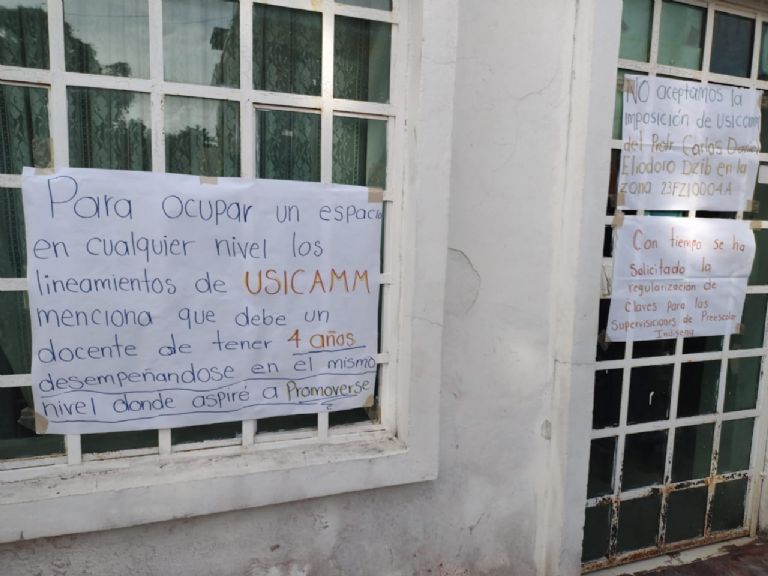 Para ocupar un espacio
en cualquier nivel los
lineamientos de USICAMM
menciona que debe un
docente de tener 4 años
desempeñandose en el mismo
nivel donde aspiré a Promoverse
NO aceptamos la
imposición de USICAMM
del Profr Carlos
Eliodoro Dzib en la
zona 23FZI0004A
Con tiempo se ha
Solicitado la
regularización de
Claves para las
Supervisiciones de Preescolar
Indígena